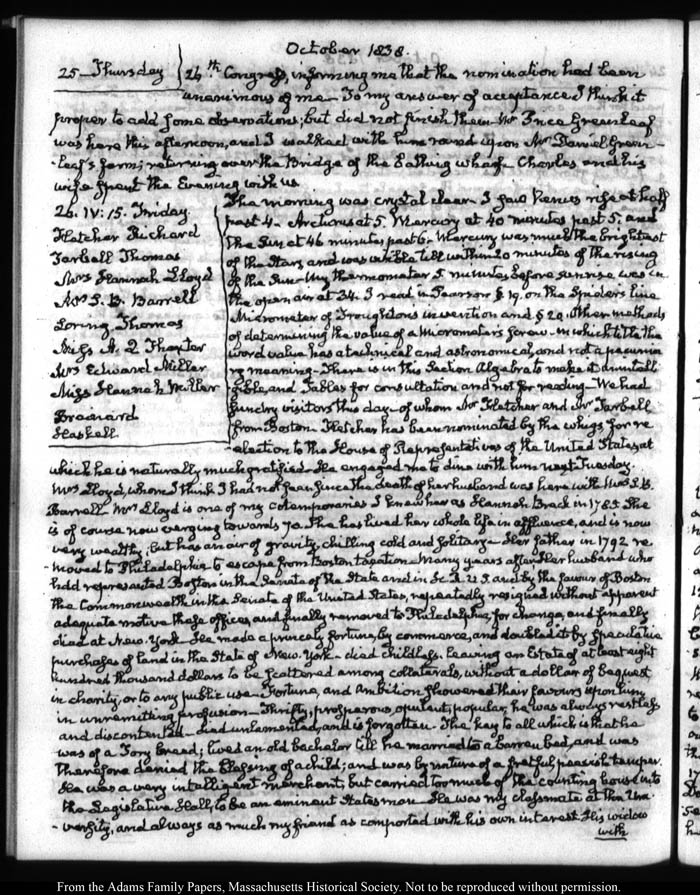 October 1838.
25 Thursday
26th Congress, informing me that the nomination had been
unanimous of me — To my answer of acceptance I think it
proper to add some observations; but did not finish them. Mr Price Greenleaf
was here this afternoon, and I walked with him round upon Mr Daniel Green-
-leaf's farm; returning over the Bridge of the Bathing wharf. Charles and his
wife spent the Evening with us
26. IV:15. Friday.
Fletcher Richard
Tarbell Thomas
Mrs Hannah Lloyd
Mrs S. B. Barrell
Loring Thomas
Miss A. Q Thaxter
Mrs Edward Miller
Miss Hannah Miller
Brainard
Haskell.
The morning was crystal clear — I saw Venus rise at half
past 4 — Arcturus at 5. Mercury at 40 minutes past 5. and
the Sun at 46 minutes past 6 — Mercury was much the brightest
of the Stars and was visible till within 20 minutes of the rising
of the Sun — My thermometer 5 minutes before sunrise was in
the open air at 34. I read in Pearson § 19. on the Spider's line
Micrometer of Troughton's invention and § 20. Other methods
of determining the value of a Micrometer's screw — in which title the
word value has a technical and astronomical, and not a pecunia-
ry meaning — There is in this Section Algebra to make it unintelli-
gible, and Tables for consultation and not for reading — We had
sundry visitors this day — of whom Mr Fletcher and Mr Tarbell
from Boston. Fletcher has been nominated by the whigs for re-
-election to the House of Representatives of the United States, at
which he is naturally much gratified. He engaged me to dine with him next Tuesday.
Mrs Lloyd, whom I think I had not seen since the death of her husband was here with Mrs S. B.
Barrell — Mrs Lloyd is one of my cotemporaries I knew her as Hannah Breck in 1785. She
is of course now verging towards 70. She has lived her whole life in affluence, and is now
very wealthy; but has an air of gravity, chilling cold and solitary. Her father in 1792 re-
-moved to Philadelphia to escape from Boston taxation — Many years after Her husband who
had represented Boston in the Senate of the State and in and by the favour of Boston
the Commonwealth in the Senate of the United States, repeatedly resigned without apparent
adequate motive these offices, and finally removed to Philadelphia, for change, and finally
died at New-York. He made a princely fortune, by commerce, and doubled it by speculative
purchases of land in the State of New-York — died childless. leaving an Estate of at least eight
hundred thousand dollars to be scattered among collaterals, without a dollar of bequest
in charity, or to any public use — Fortune, and Ambition showered their favours upon him,
in unremitting profusion — Thrifty, prosperous, opulent, popular, he was always restless
and discontented — died unlamented, and is forgotten — The key to all which is that he
was of a Tory breed; lived an old bachelor till he married to a barren bed, and was
therefore denied the blessing of a child; and was by nature of a fretful, peevish temper.
He was a very intelligent merchant, but carried too much of the counting house into
the Legislative Hall, to be an eminent Statesman — He was my classmate at the Uni-
-versity, and always as much my friend as comported with his own interest. His widow
with
From the Adams Family Papers, Massachusetts Historical Society. Not to be reproduced without permission.